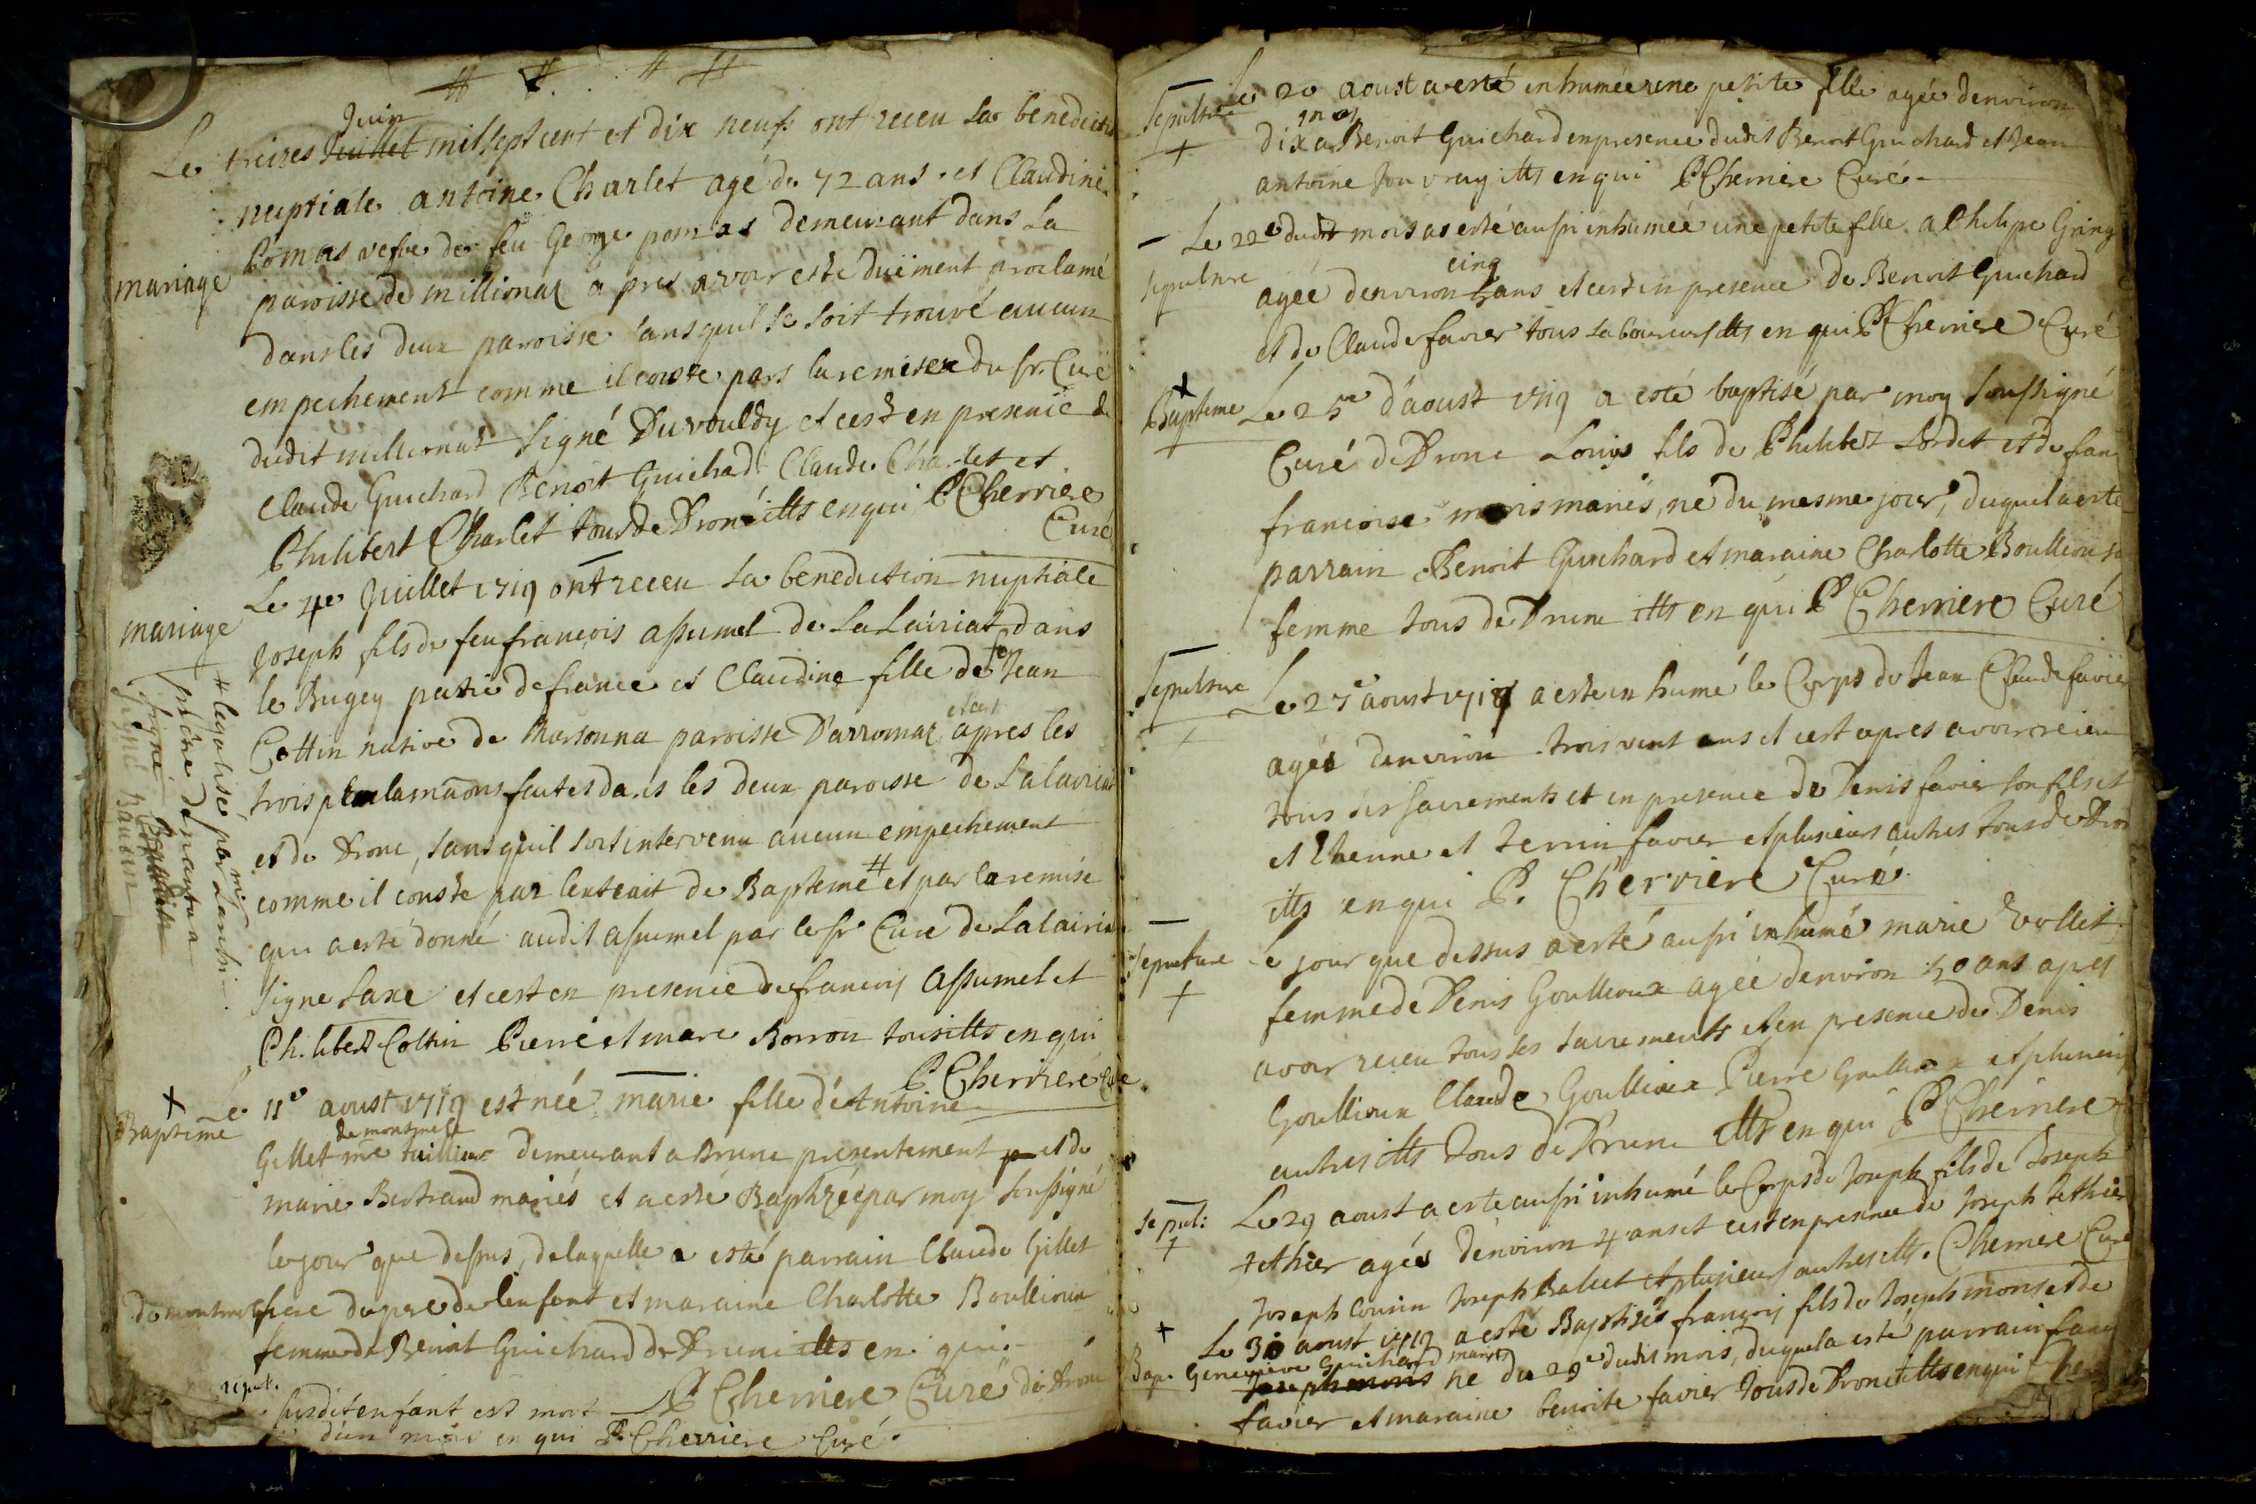 Juin
Le treizes Juillet mil sept cent et dix neufs ont receu la benedict
nuptiale antoine Charlet agé de 72 ans. et Claudine
Comas vefve de feu George pomas demeurant dans la
mariage
paroisse de millionaz a pres avoir esté duëment proclamé
dans les deux paroisse sans quil se soit trouvé aucun
empechement comme il conste pars la remise du sr. Curé
dudit millionat signé Duvouldy et cest en presence de
Claude Guichard Benoit Guichard Claude Charlet et
Philibert Charlet tous de Drone itts en qui P Cherriere
Curé
Le 4e Juillet 1719 ont receu la benediction nuptiale
mariage
Joseph fils de feu francois assumel de La Lairiat dans
le Bugey patrie de france et Claudine fille de feu Jean
Cottin native de Marsonna paroisse D'arromaz apres les
trois proclamaons faites dans les deux paroisse de Lalairiat
et de Drone, sans quil soit intervenu aucun empechement
comme il conste par lextrait de Bapteme # et par la remise
qui a esté donné audit assumel par le sr Curé de Lalairia
signe Saxe et cest en presence de francois Assumel et
Philibert Cottin Pierre et marc Borron tous itts en qui
P Cherriere Curé
# legalisé par
prche de nantua
signé
Baudin
Le 11e aoust 1719 est née marie fille d'Antoine
Bapteme
de montmele
Gillet me taillieur demeurant a Drune presentement et de
marie Bertrand mariés et a esté Baptizée par moy soussigné
le jour que dessus, de laquelle a esté parrain Claude Gillet
de montmele frere du pre de lenfent et maraine Charlotte Boullioux
femme de Benoit Guichard de Drune itts en qui
P Cherriere Curé de Drone
sepul.
susdit enfant est mort
d'un mois en qui P. Cherriere Curé.
Sepulture
Le 20 aoust a esté inhumée une petite fille agée denviron
dix ans a Benoit Guichard en presence dudit Benoit Guichard et Jean
antoine Jouvray itts en qui P Cherriere Curé
Sepulture
Le 22e dudit mois as esté aussi inhumée une petite fille a Philipe Gring
cinq
agée denviron ans et cest en presence de Benoit Guichard
et de Claude favier tous laboureurs itts en qui P Cherriere Curé
Bapteme
Le 25me d'aoust 1719 a esté baptisé par moy soussigné
Curé de Drone Louys fils de Philibert Lordet et de fran
francoise mariés, né du mesme jour, duquel a esté
parrain Benoit Guichard et maraine Charlotte Boullioux sa
femme tous de Drune itts en qui P Cherriere Curé
Sepulture
Le 27e aoust 1719 a esté inhumé le Corps de Jean Claude favier
agés denviron trois vint ans et cest apres avoir receu
tous ses sacrements et en presence de Denis favier son fils et
et Etienne et favier et plusieurs autres tous de Dron
itts en qui P. Cherriere Curé.
Sepulture
Le jour que dessus a esté aussi inhumé marie Vollet
femme de Denis Goullioux agée denviron 50 ans apres
avoir receu tous les sacrements et en presence de Denis
Goullioux Claude Goullioux Pierre Goullioux et plusieurs
autres itts tous de Drune itts en qui P Cherriere
Sepul:
Le 29 aoust a esté aussi inhumé le Corps de Joseph fils de Joseph
tethier agés denviron 4 ans et cest en presence de Joseph tethier
Joseph Cousin Joseph Ballet et plusieurs autres itts. Cherriere Curé
Bap.
Le 30 aoust 1719 a esté Baptisés francois fils de Joseph mons et de
Genevieve Guichard mariés
né du 29e dudit mois, duquel a esté parrain franç
favier et maraine benoite favier tous de Drone itts en qui Cherr